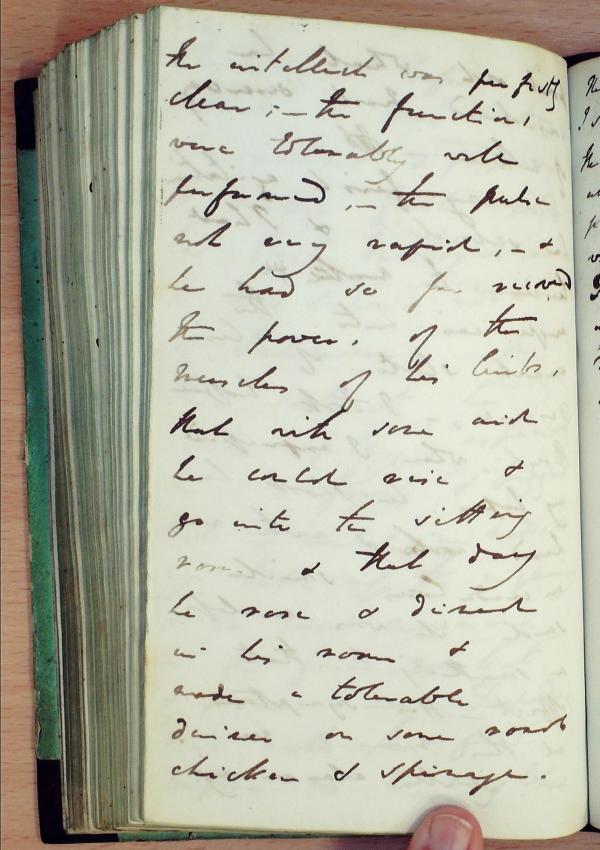 the intellect was perfectly
clear; – the functions
were tolerably well
performed, – the pulse
not very rapid, – &
he had so far recovered
the power, of the
muscles of his limbs,
that with some aid
he could rise &
go into the sitting
room & that day
he rose & dined
in his room &
made a tolerable
dinner on some roast
chicken & spinage.